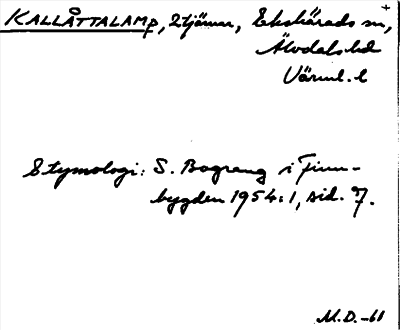 KALLÅTTALAMP, 2 tjärnar, Ekshärads sn,
Älvdals hd
Värml. l
Etymologi: S. Bograng i Finn-
bygden 1954:1, sid. 7.
M.D.-61